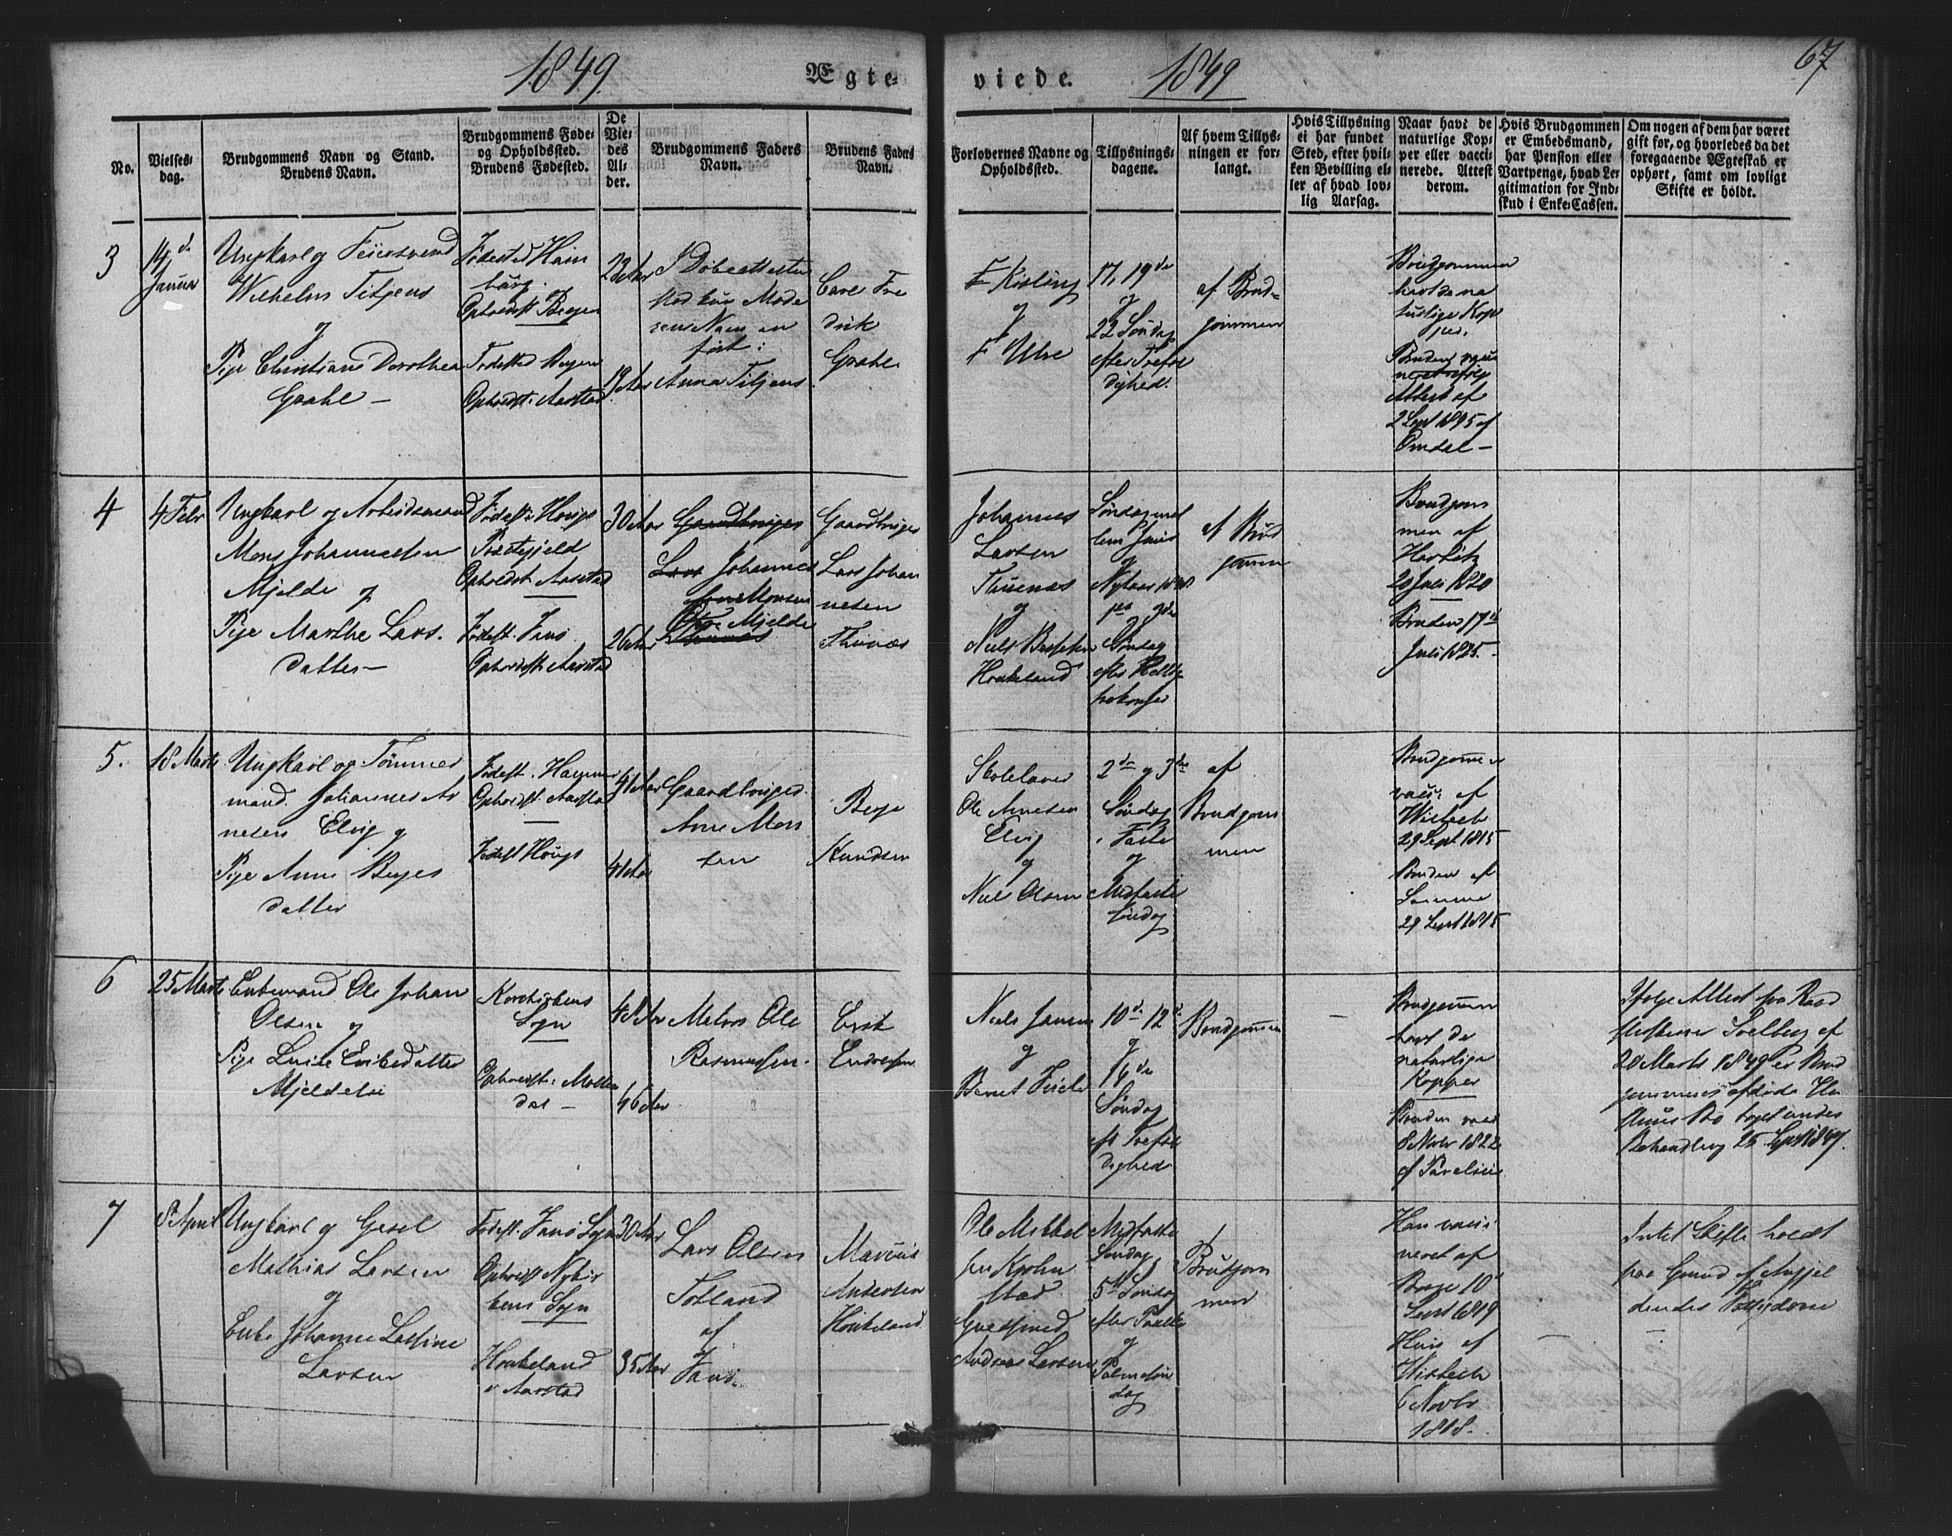 1849.
Ægte-
viede.
1849
67
No.
Vielses-
dag.
Brudgommens Navn og Stand.
Brudens Navn.
Brudgommens Føde-
og Opholdssted.
Brudens Fødested.
De
Vie-
des
Al-
der.
Brudgommens Faders
Navn.
Brudens Faders
Navn.
Forlovernes Navne og
Opholdssted.
Tillysnings-
dagene.
Af hvem Tillys-
ningen er for-
langt.
Hvis Tillysning
ei har fundet
Sted, efter hvil-
ken Bevilling el-
ler af hvad lov-
lig Aarsag.
Naar havt de
naturlige Kop-
per eller vacci-
nerede. Attest
derom.
Hvis Brudgommen
er Embedsmand,
har Pension eller
Vartpenge, hvad Le-
gitimation for Ind-
skud i Enke-Cassen.
Om nogen af dem har været
gift før, og hvorledes da det
foregaaende Ægteskab er
ophørt, samt om lovligt
Skifte er holdt.
3
14 d
Januar
Ungkarl og
Wilhelm Titjens
og
Pige Christiane Dorothea
Grahl —
Fødested Ham
burg. og
Opholdst Bergen
Fødested Bergen
Opholdst. Aarstad
22 Aar
19 Aar
I Døbeattesten
stod kun Mode
rens Navn an
ført:
Anna Titjens
Carl Fre
drik
Grahl
F Kisling
og
17, 19de
og
22 Søndag
efter Trefol
dighed.
af Brud-
gommen
Brudgommen
havt de na
turlige Kop
per.
Bruden vacci
neret
Attest af
2 Sept 1845 af
Omdal —
4
4 Febr
Ungkarl og Arbeidsmand
Mons Johannessen
Mjelde og
Pige Marthe Lars-
datter —
Fødest: Hougs
Præstegjeld
Opholdst Aarstad
Fødest. Fanø
Opholdst Aarstad
30 Aar
26 Aar
Gaardbruger
Lars Johannes
Monsen
Mjelde
Gaardbruger
Lars Johan
nesen
Thunæs
Johannes
Larsen
Thunæs
og
Niels
Houkeland
Søndag mel
lem Juul
og
Nytaar 1848
1ste og 2de
Søndag
efter Hellig
3 konger
af Brud
gommen
Brudgom
men af
20 Juli 1820
Bruden 17de
Juli 1825.
5.
18 Marts
Ungkarl og Tømmer
mand. Johannes Ar
nesen Elvig og
Pige Anne Berges
datter
Fødest. Hammer
Opholdst. Aarstad
Fødest Hougs
41 Aar
41 Aar
Gaardbruger
Arne Mon
sen
Berge
Knudsen
Skolelærer
Ole Arnesen
Elvig
og
Niels Olsen
2den og 3die
Søndag
i Faste
og
Midfaste
søndag
af
Brudgom
men
Brudgommen
vacc: af
Wisbech
29 Sept 1815
Bruden af
29 Sept 1815
6
25 Marts
Enkemand Ole Johan
Olsen og
Pige Lucie Eriksdatter
Mjeldeli
Korskirkens
Sogn
Opholdst: Møllen
dal —
48 Aar
46 Aar
Matros Ole
Rasmussen.
Erik
Endresen
Niels Jansen
og
Bernt
10de 12te
og
16de
Søndag
eft Trefol
dighed
Brudgommen
—
Brudgommen
havt de
naturlige
Kopper
Bruden vacc
8 Novbr 1822
Ifølge Attest fra Raad
20 Marts 1849 er Brud
gommens afdøde
Bo taget under
Behandling 25 Sept 1847.
7
8 April
Ungkarl og Gesel
Mathias Larsen
og
Enke Johanne Lassine
Larsen
Fødest. Fanø Sogn
Opholdst Nykir
kens Sogn
Houkeland
i Aarstad
30 Aar
35 Aar
Lars Olsen
Totland
af
Fanø.
Marcus
Andersen
Houkeland
Ole Mikkel
sen Krohn
stad
Andreas Larsen
Midfaste
Søndag,
5te Søndag
efter Faste
og
Palmesøn
dag
Brudgom
men
Han vacci
neret af
10
Sept 1819
Hun af
Wisbech
6 Novbr
1818.
—
Intet Skifte holdt
paa Grund af